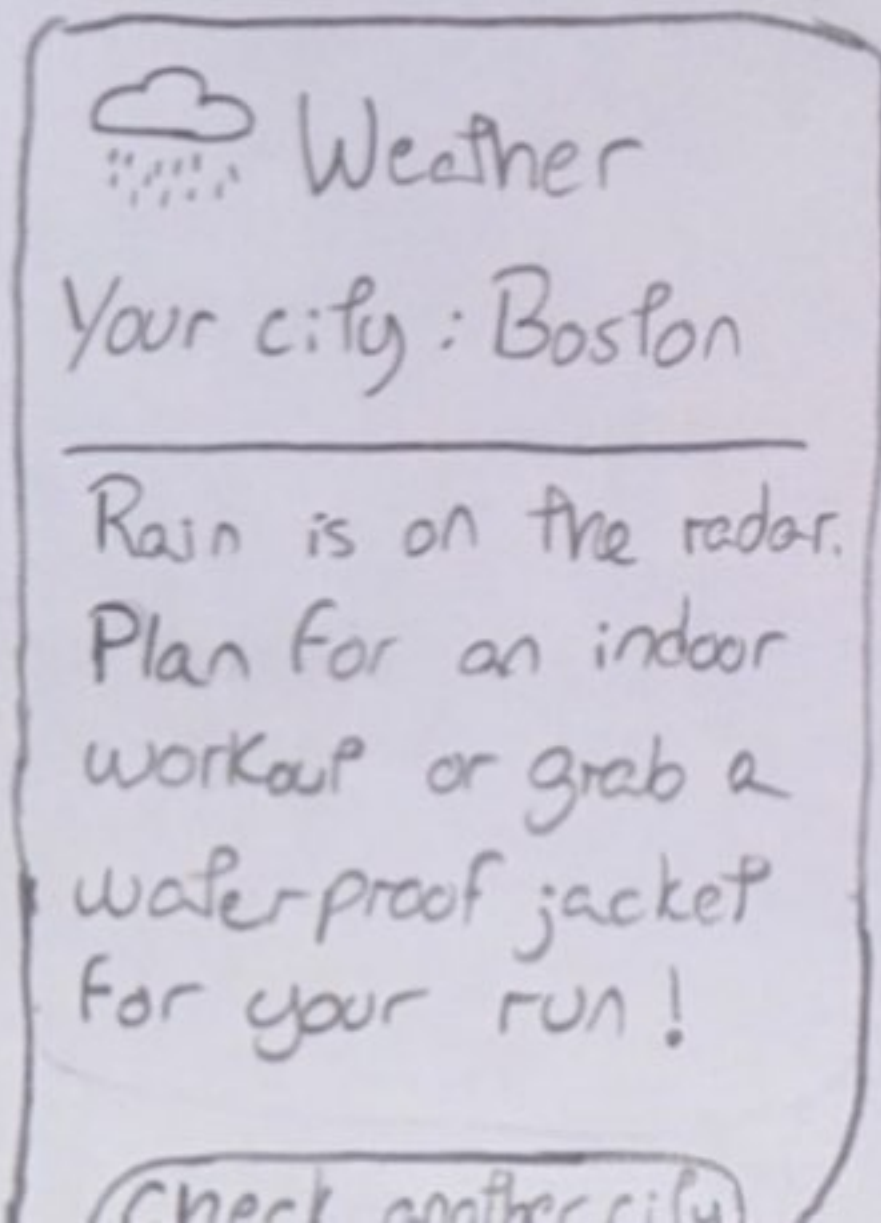 Weather
Your city : Boston
Rain is on the radar.
Plan for an indoor
workout or grab a
waterproof jacket
for your run!
Check another city